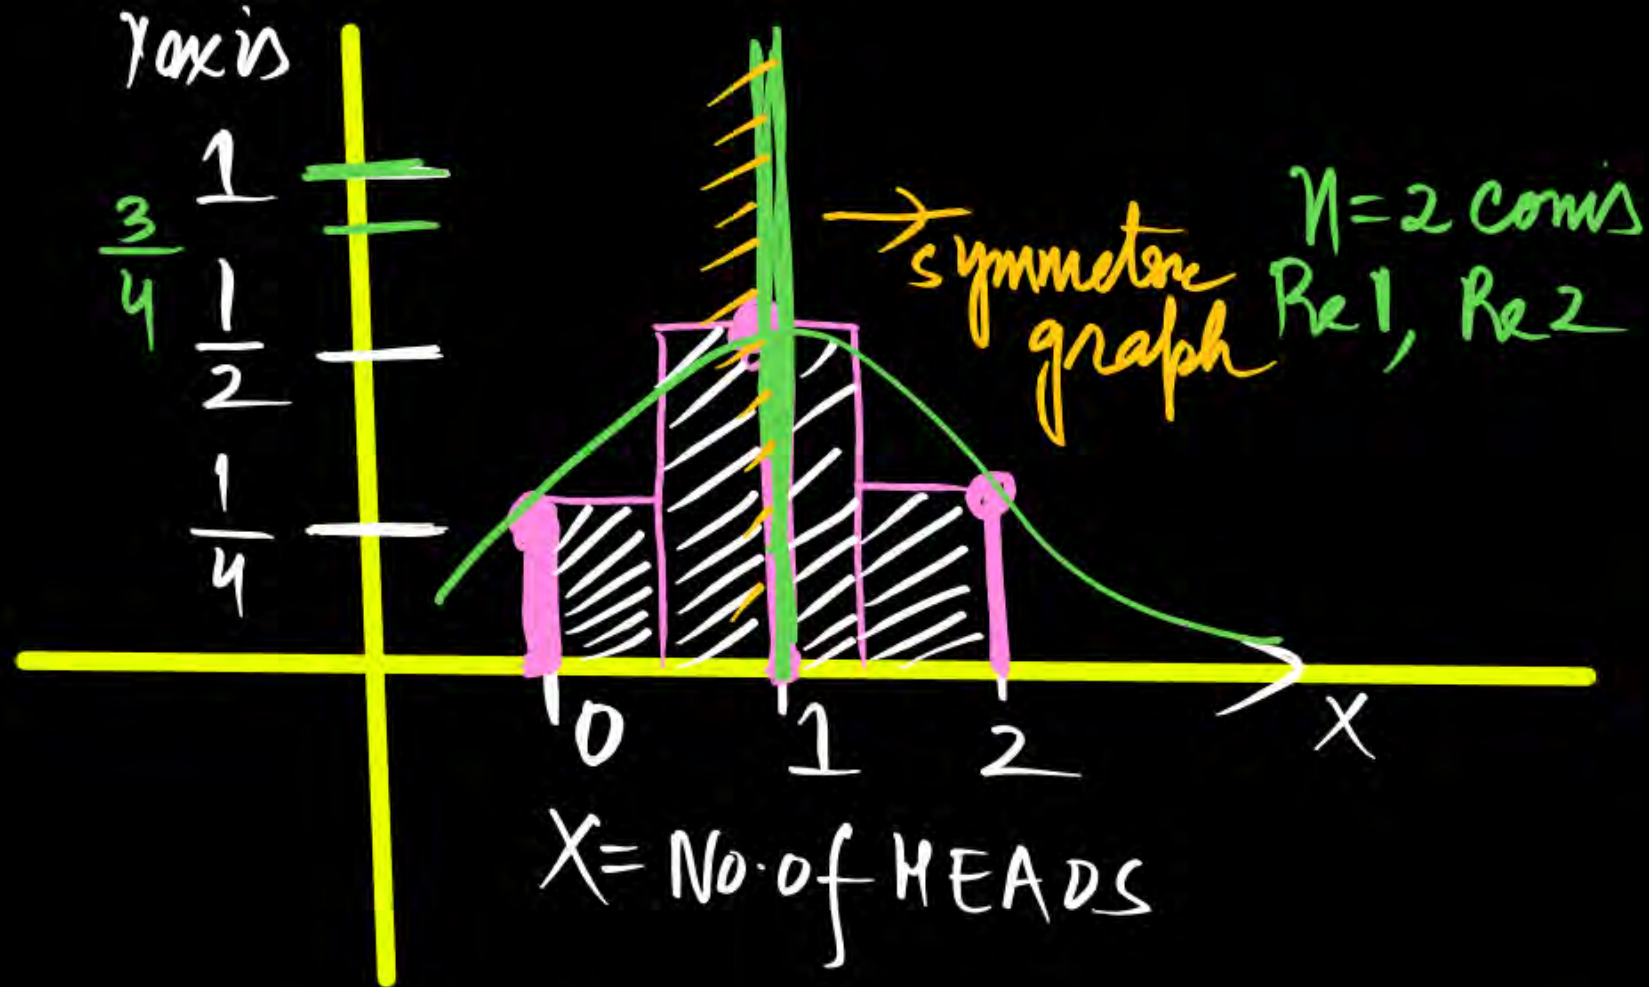 Yaxis
1
3/4
1/2
1/4
symmetric
graph
n=2 coins
Re1, Re2
0 1 2
X
X= No. of HEADS